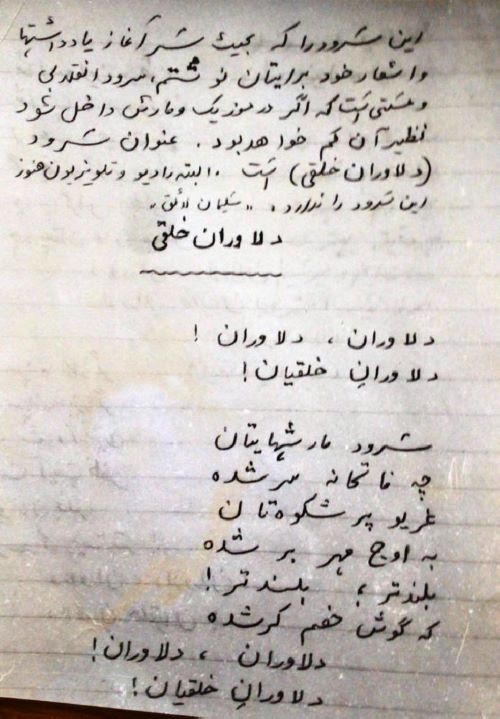 این سرود را که بحیث سر آغاز یادداشتها
و اشعار خود برایتان نوشتم، سرود انقلابی
و مستی است که اگر در موزیک و مارش داخل شود
نظیر آن کم خواهد بود. عنوان سرود
(دلاوران خلقی) است. البته رادیو و تلویزیون هنوز
این سرود را ندارد. "سلیمان لائق"
دلاوران خلقی
دلاوران، دلاوران!
دلاورانِ خلقیان!
سرود مارشهایتان
چه فاتحانه سر شده
غریو پر شکوه تان
به اوج مهر بر شده
بلندتر، بلندتر!
که گوش خصم کر شده
دلاوران، دلاوران!
دلاورانِ خلقیان!